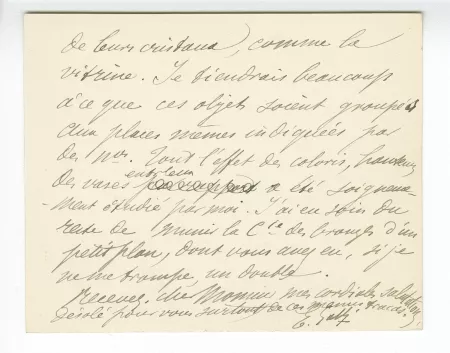 de leurs cristaux), comme la
vitrine. Je tiendrais beaucoup
à ce que ces objets soient groupés
aux places mêmes indiquées par
des nos. Tout l'effet des coloris, hauteurs
entre leur
des vases a été soigneuse-
ment étudié par moi. J'ai eu soin du
reste de munir la Cie des bronzes d'un
petit plan, dont vous avez eu, si je
ne me trompe un double.
Recevez, cher Monsieur mes cordiales salutations
Désolé pour vous surtout de ces menus tracas.
E. Gallé